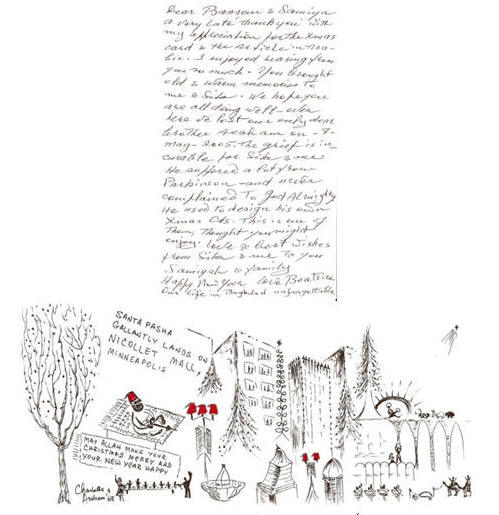 Dear Bassam & Samiya
a very late thank you with
my appreciation for the Xmas
card & the article in Ara-
bic. I enjoyed hearing from
you so much. You brought
old & warm memories to
me & Sita. We hope you
are all doing well - over
here we lost our only dear
brother Arsham on - 8-
may - 2005. The grief is in
curable for Sita & me
He suffered a lot from
Parkinson - and never
complained to god Almighty
He used to design his own
Xmas Cds. This is one of
them, thought you might
enjoy. Love & best wishes
from Sita & me to you
Samiyah & family
Happy New Year Love Beatrice
Our life in Baghdad unforgettable
SANTA PASHA
GALLANTLY LANDS ON
NICOLLET MALL,
MINNEAPOLIS
MAY ALLAH MAKE YOUR
CHRISTMAS MERRY AND
YOUR NEW YEAR HAPPY
Charlotte &